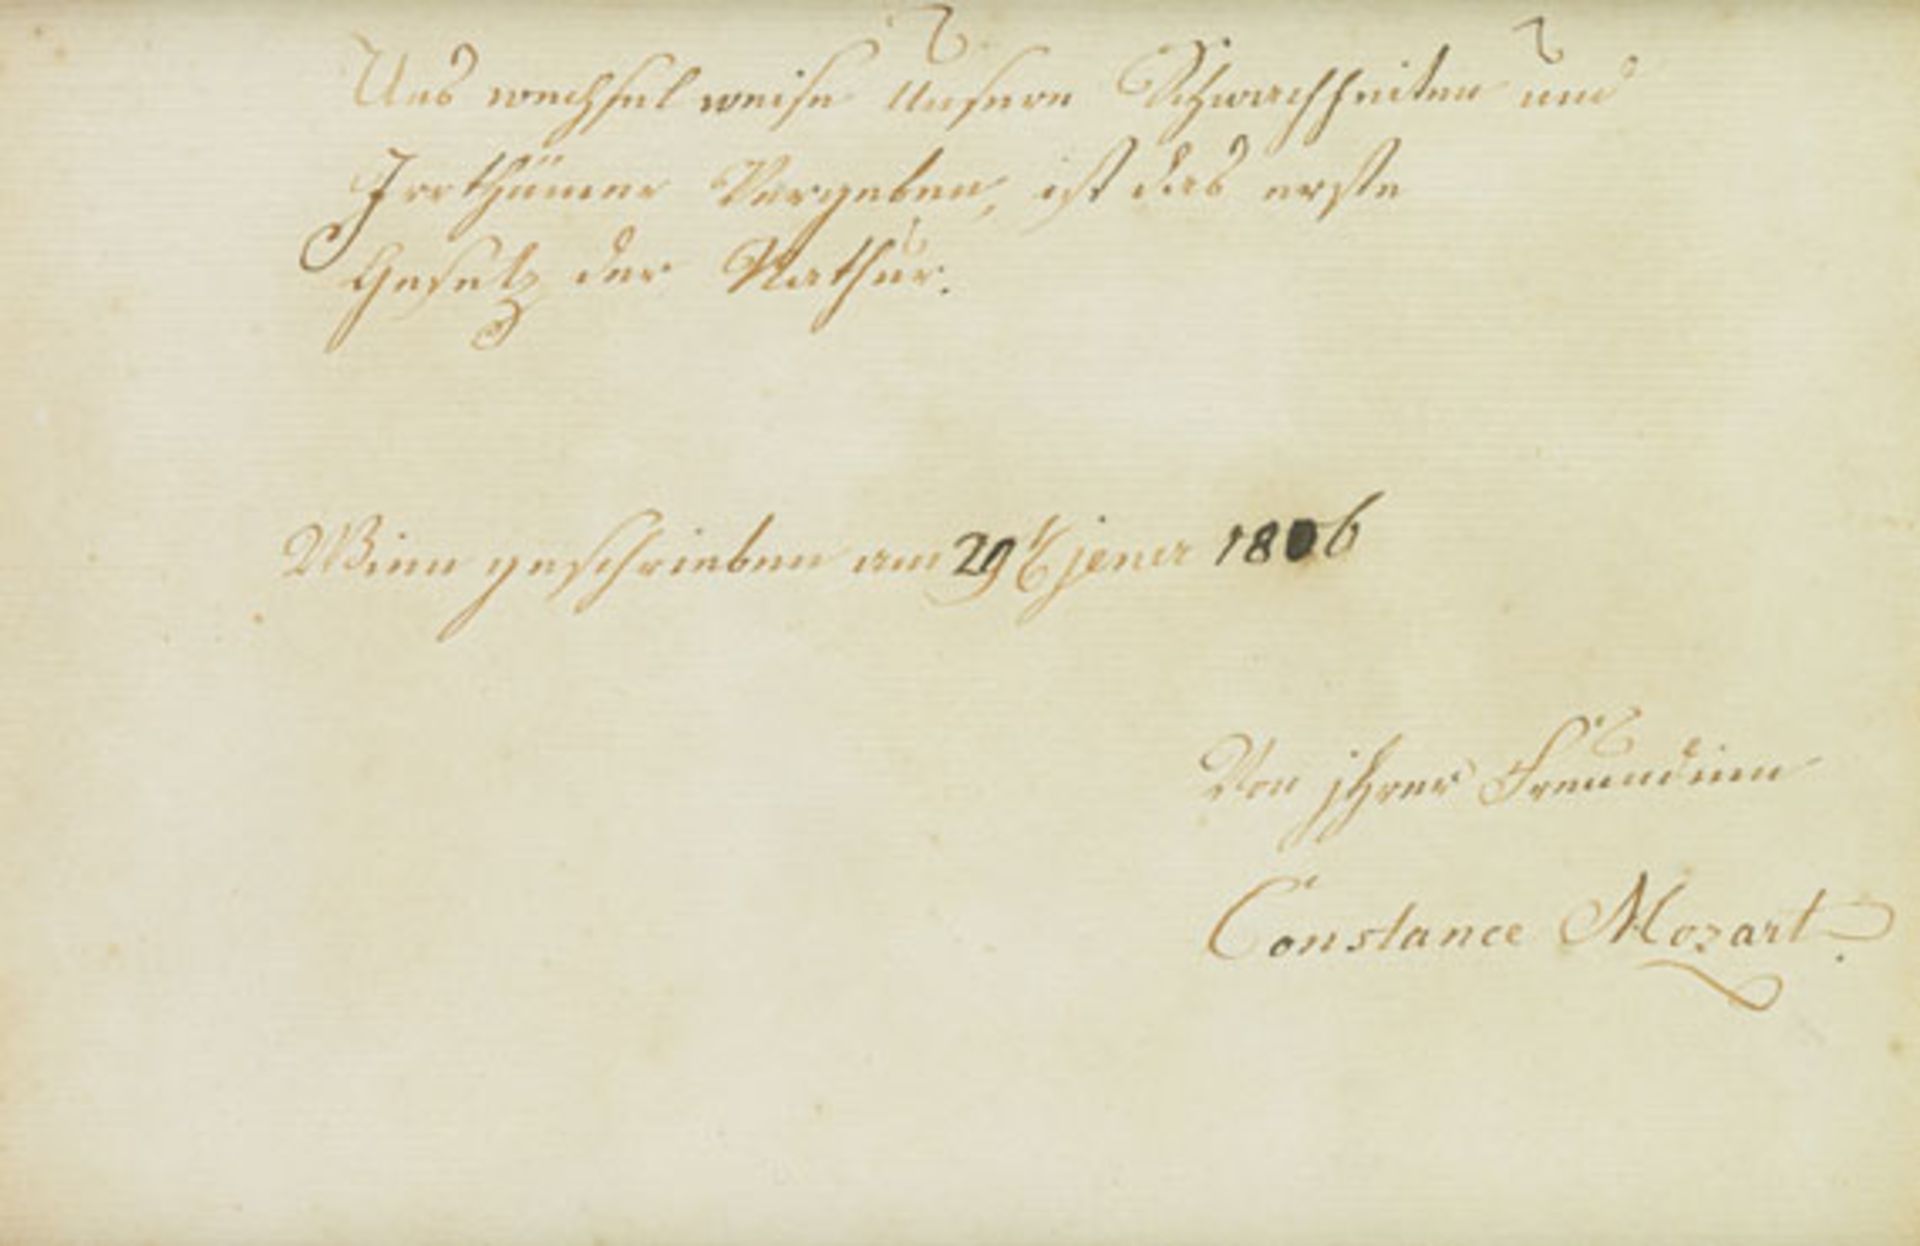 Uns wechsel weise Unsere Schwachheiten und
Irrthümer Vergeben, ist das erste
Gesetz der Nathur.
Wien geschrieben am 29t jener 1806
Von ihrer Freundinn
Constance Mozart.